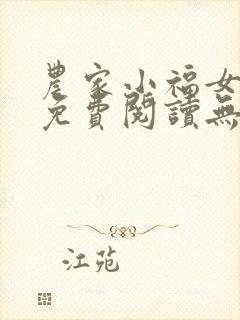 農家小福女
免費閱讀無
江苑